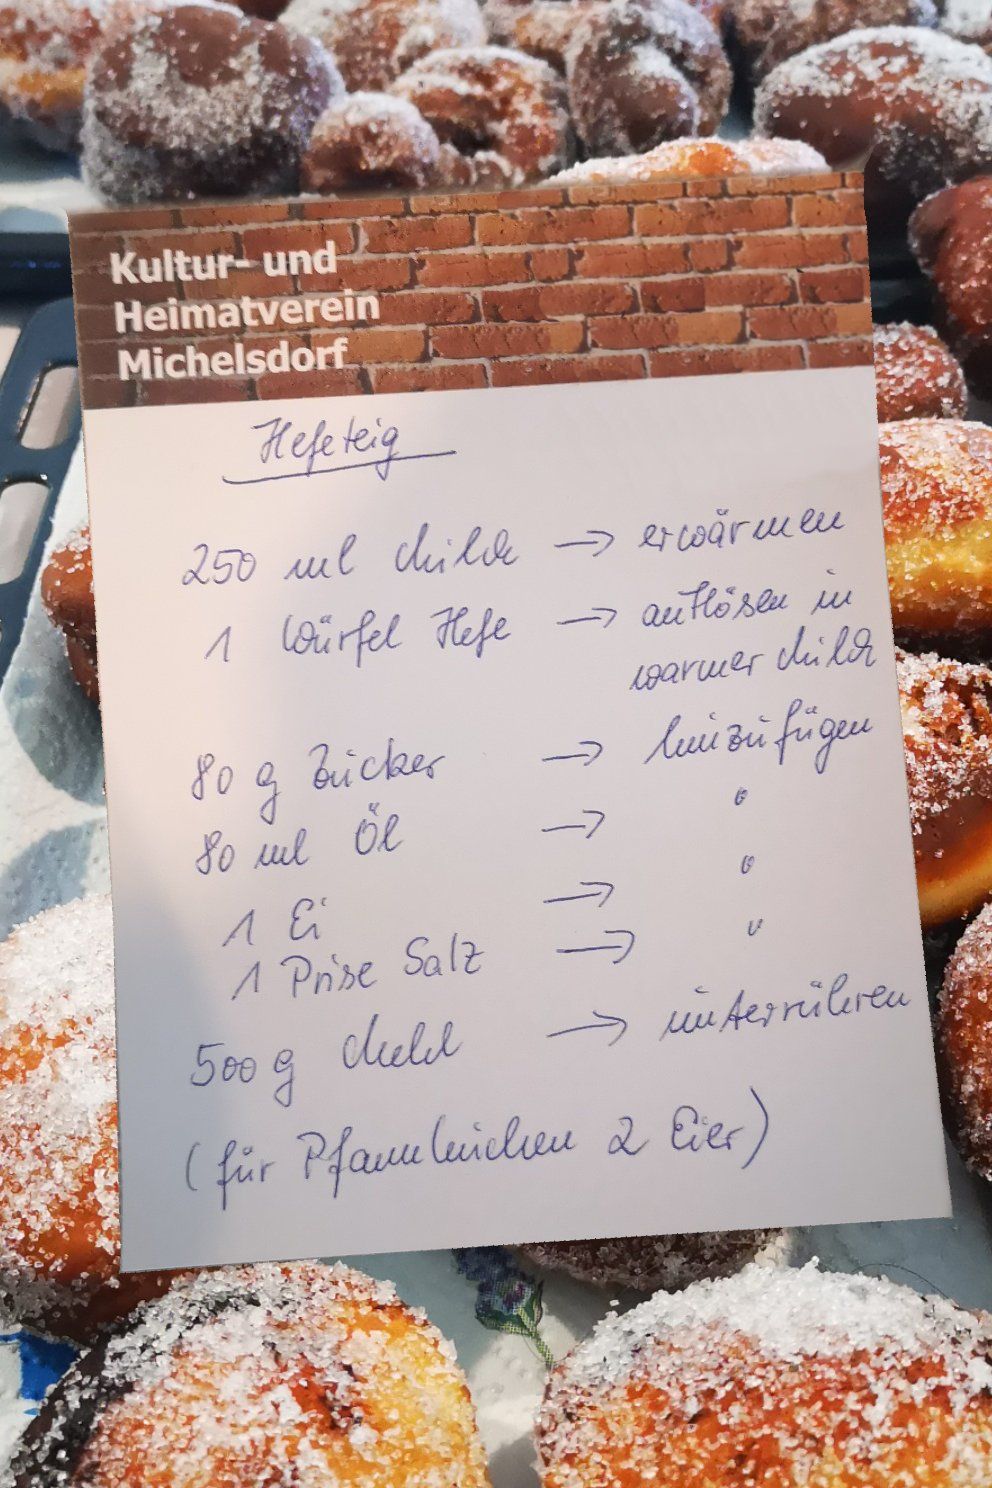 Kultur- und
Heimatverein
Michelsdorf
Hefeteig
250 ml Milch → erwärmen
1 Würfel Hefe → auflösen in
warmer Milch
80 g Zucker → hinzufügen
80 ml Öl → "
1 Ei → "
1 Prise Salz → "
500 g Mehl → unterrühren
(für Pfannkuchen 2 Eier)